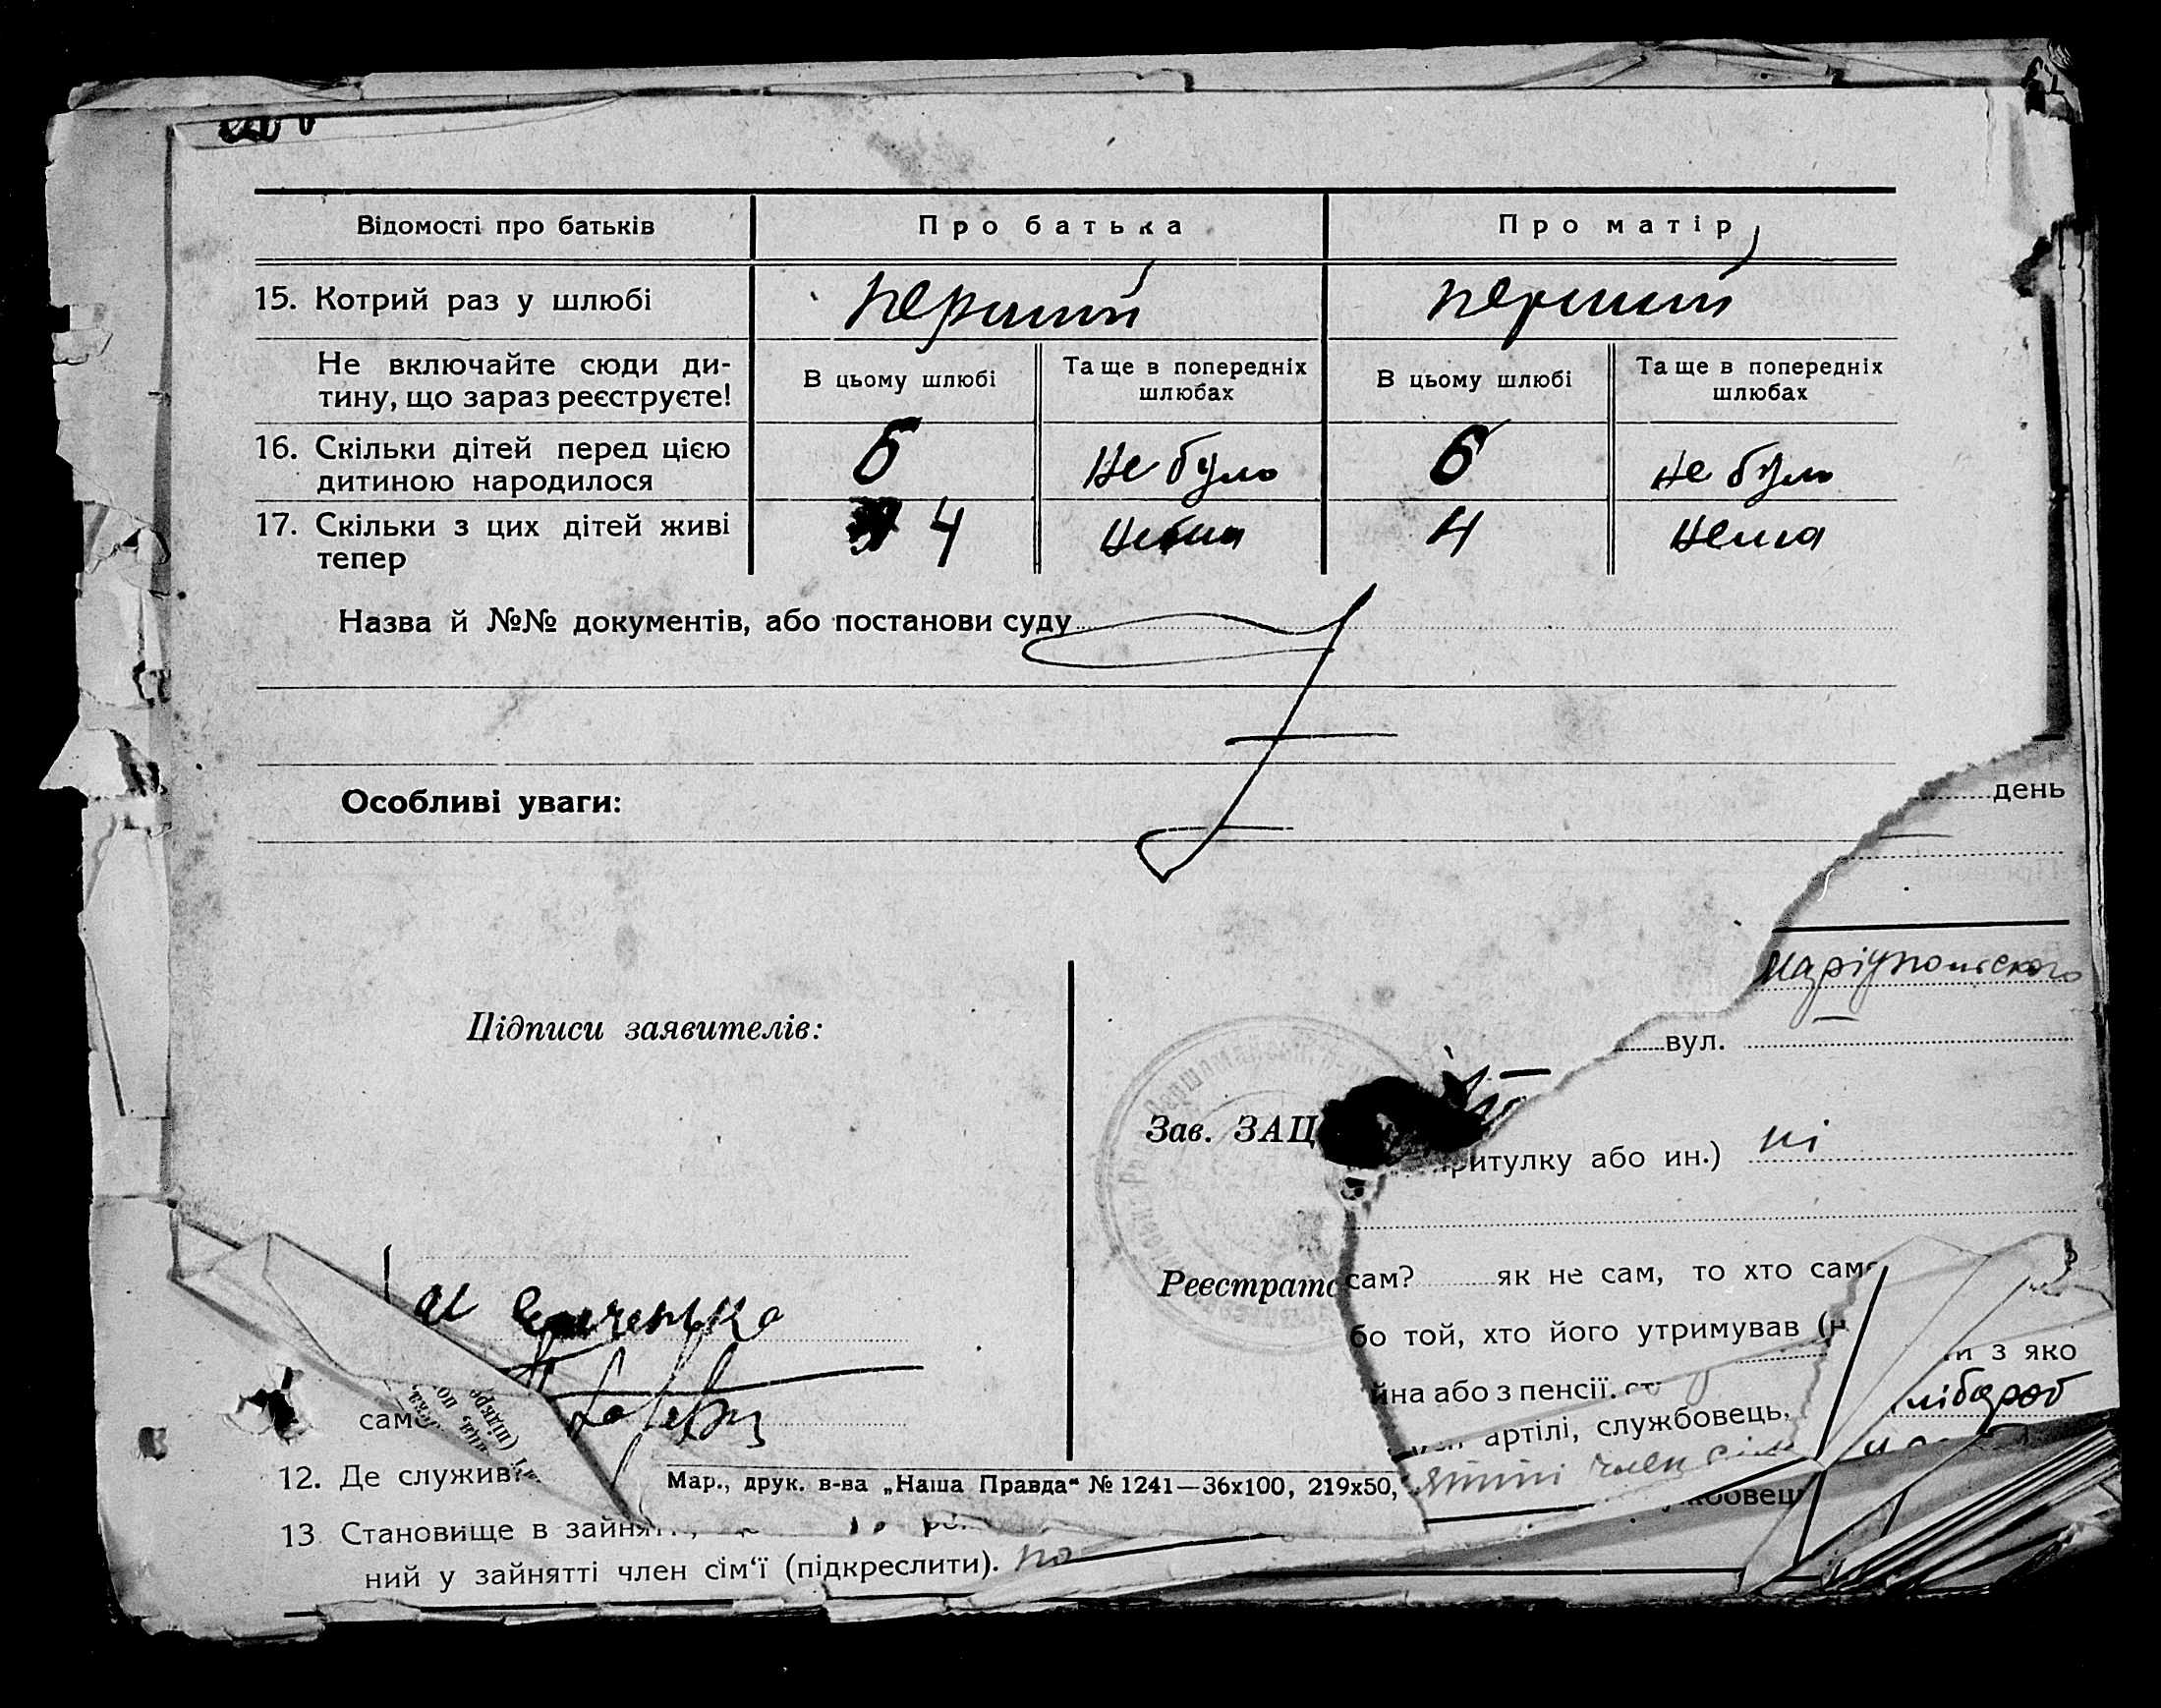 Відомості про батьків Про батька Про матір
15. Котрий раз у шлюбі перший перший
Не включайте сюди ди-
тину, що зараз реєструєте!
В цьому шлюбі
Та ще в попередніх
шлюбах
В цьому шлюбі
Та ще в попередніх
шлюбах
16. Скільки дітей перед цією
дитиною народилося
не було не було
17. Скільки з цих дітей живі
тепер
4 нема 4 нема
Назва й №№ документів, або постанови суду
Особливі уваги:
день
Маріупольского
вул.
Підписи заявителів:
Зав. ЗАЦ
ритулку або ин.) ні
Реєстрато
сам? як не сам, то хто саме
бо той, хто його утримував (н
з яко
йна або з пенсії.
артілі, службовець,
член сім
хлібороб
12. Де служив
Мар., друк. в-ва „Наша Правда“ № 1241—36х100, 219х50,
13 Становище в зайня
ний у зайнятті член сім‘ї (підкреслити).